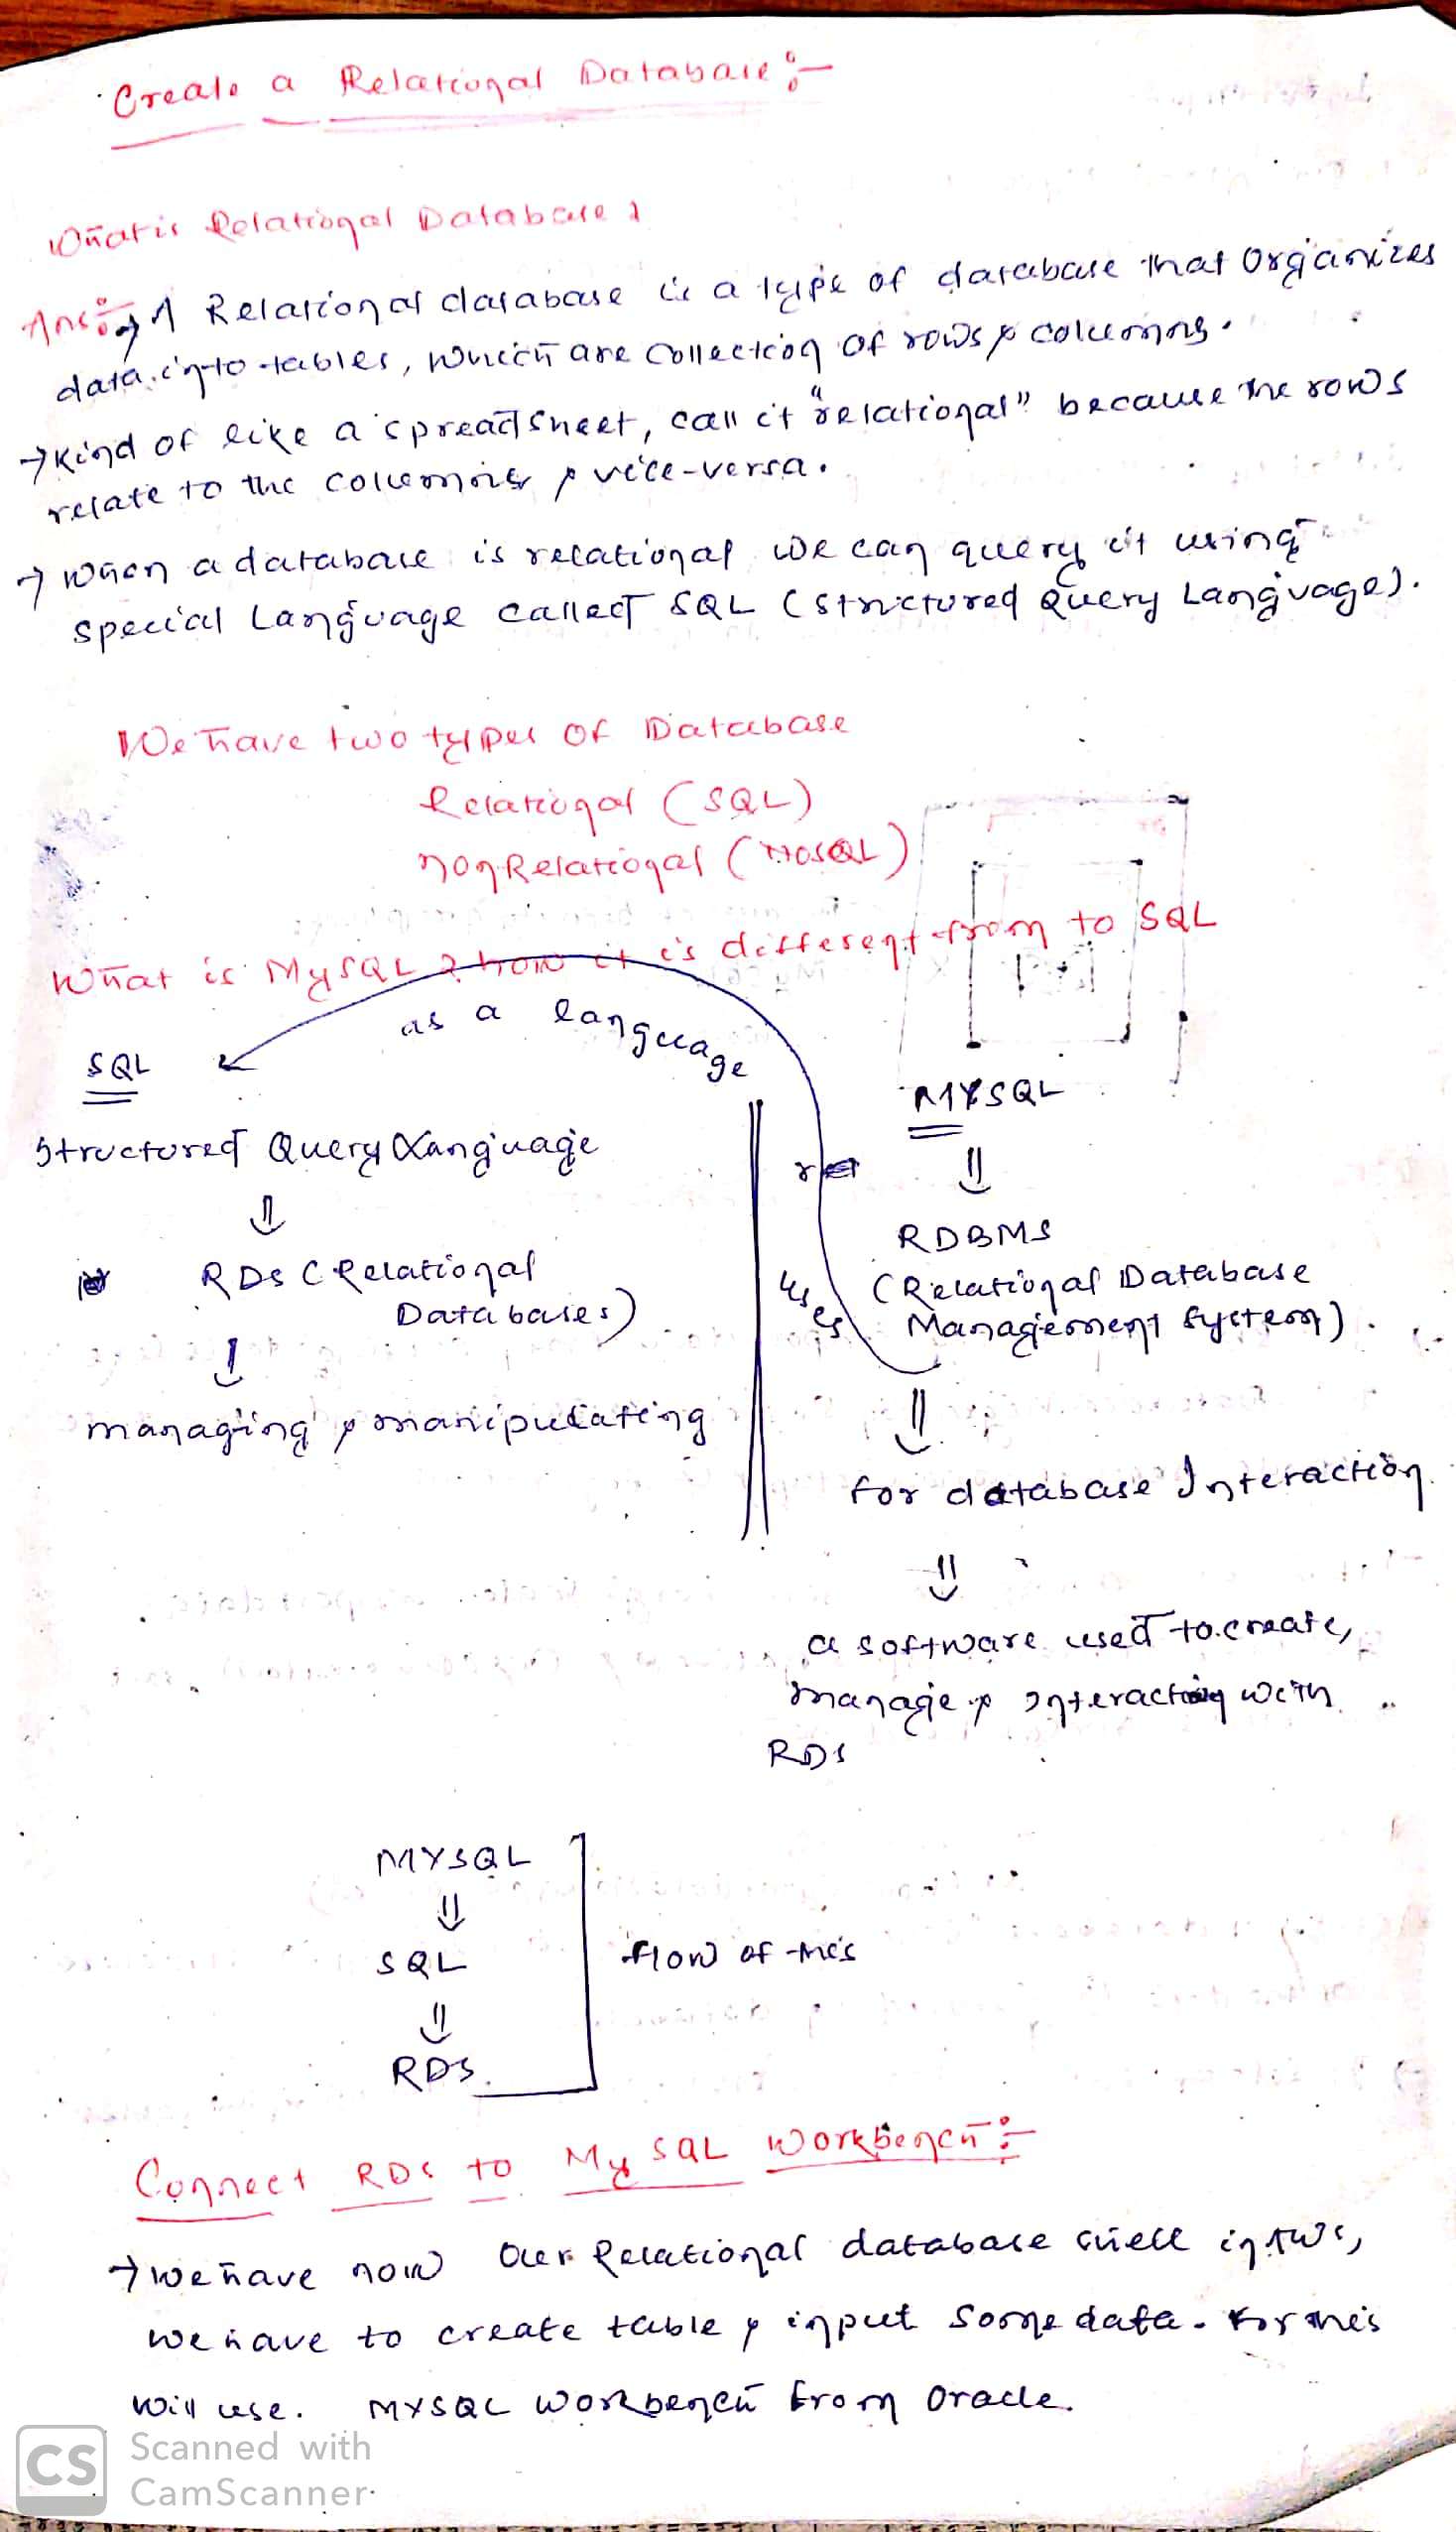 Create a Relational Database :-
What is Relational Database ?
Ans:- → A Relational database is a type of database that Organizes
data into tables, which are collection of rows & columns.
→ Kind of like a spreadsheet, call it "relational" because the rows
relate to the columns & vice-versa.
→ When a database is relational we can query it using
special Language called SQL (Structured Query Language).
We have two types of Database
Relational (SQL)
non Relational (NoSQL)
What is MySQL ? how it is different from to SQL
as a language
SQL
MYSQL
Structured Query Language
⇓
⇓
RDS (Relational
Databases)
RDBMS
(Relational Database
Management System).
uses
↓
managing & manipulating
⇓
for database Interaction.
⇓
a software used to create,
manage & interacting with
RDS
MYSQL
⇓
SQL
flow of this
⇓
RDS.
Connect RDS to My SQL Workbench :-
→ we have now Our Relational database shell in AWS,
we have to create table & input some data. For this
will use. MYSQL Workbench from Oracle.
CS Scanned with
CamScanner